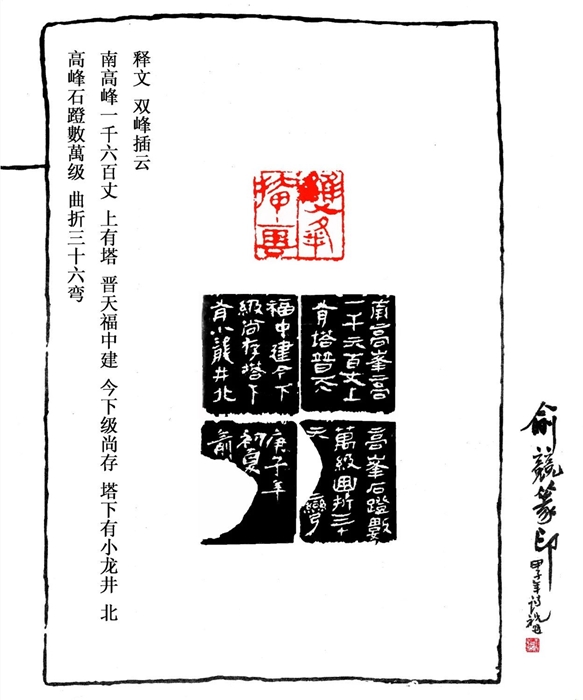 释文 双峰插云
南高峰一千六百丈 上有塔 晋天福中建 今下级尚存 塔下有小龙井 北
高峰石蹬數萬级 曲折三十六弯
雙峯
插雲
南高峯高
一千六百丈上
有塔晉天
福中建今下
級尚存塔下
有小龍井北
高峯石蹬數
萬級曲折三十
六彎
庚子年
初夏
俞
俞競篆印
甲子年